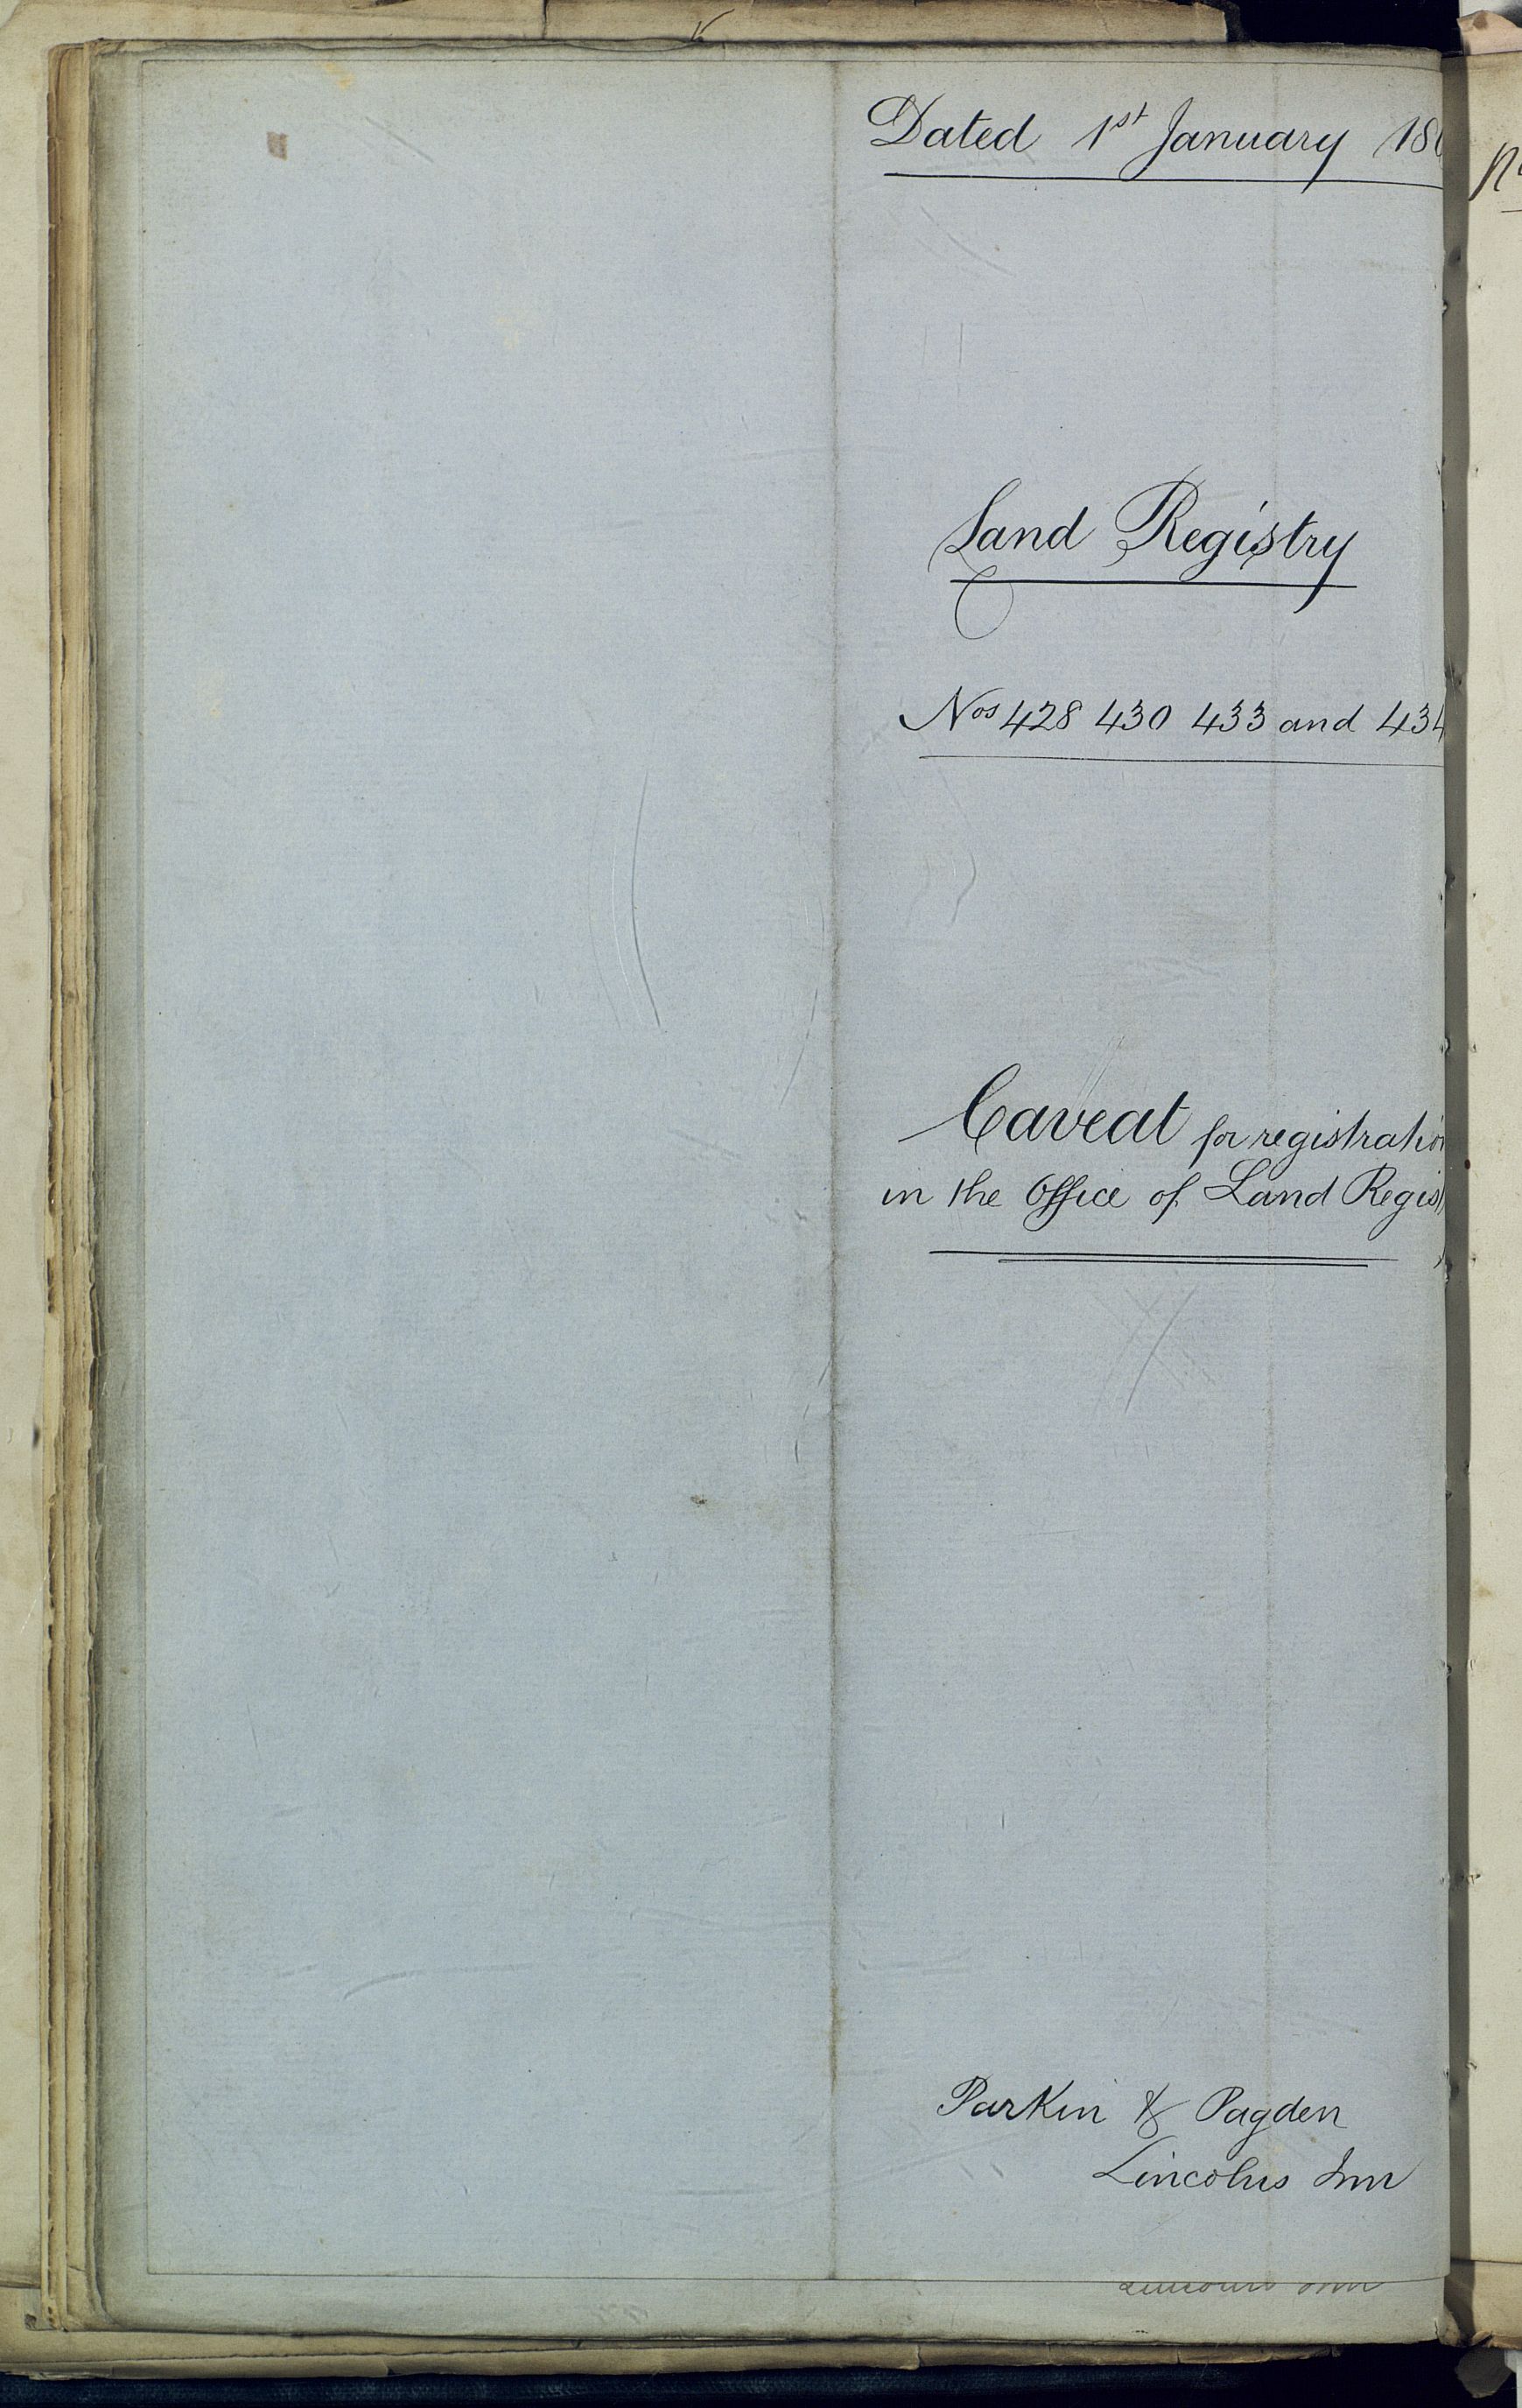 Dated 1st January 18
Land Registry
Nos 428 430 433 and 434
Caveat for registration
in the Office of Land Regist
Parkin & Pagden
Lincolns Inn
Lincolns Inn